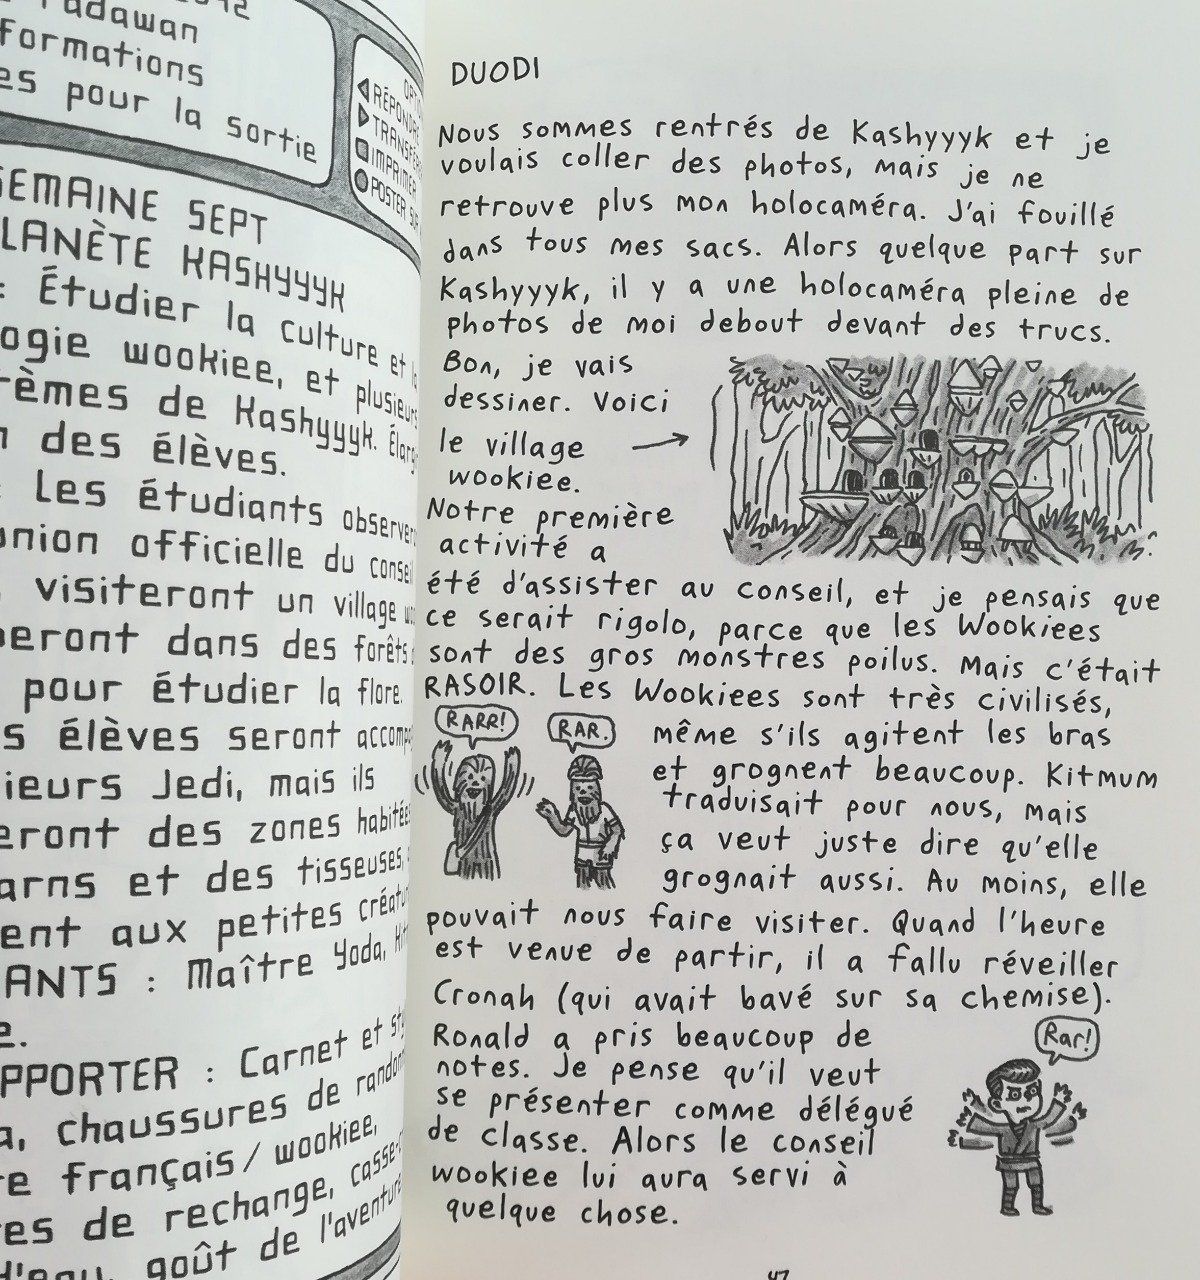 Padawan
formations
es pour la sortie
RÉPONDRE
IMPRIMER
POSTER SUR
SEMAINE SEPT
PLANÈTE KASHYYYK
: Étudier la culture et
wookiee, et plusieurs
de Kashyyyk.
des élèves.
: Les étudiants
officielle du
visiteront un village
dans des forêts
pour étudier la flore.
s élèves seront
Jedi, mais ils
des zones habitées
et des tisseuses,
aux petites
: Maître Yoda,
: Carnet et
chaussures de
français/wookiee,
de rechange,
d'eau, goût de l'aventure
DUODI
Nous sommes rentrés de Kashyyyk et je
voulais coller des photos, mais je ne
retrouve plus mon holocaméra. J'ai fouillé
dans tous mes sacs. Alors quelque part sur
Kashyyyk, il y a une holocaméra pleine de
photos de moi debout devant des trucs.
Bon, je vais
dessiner. Voici
le village
wookiee.
Notre première
activité a
été d'assister au conseil, et je pensais que
ce serait rigolo, parce que les Wookiees
sont des gros monstres poilus. Mais c'était
RASOIR. Les Wookiees sont très civilisés,
RARR!
RAR.
même s'ils agitent les bras
et grognent beaucoup. Kitmum
traduisait pour nous, mais
ça veut juste dire qu'elle
grognait aussi. Au moins, elle
pouvait nous faire visiter. Quand l'heure
est venue de partir, il a fallu réveiller
Cronah (qui avait bavé sur sa chemise).
Ronald a pris beaucoup de
notes. Je pense qu'il veut
se présenter comme délégué
de classe. Alors le conseil
wookiee lui aura servi à
quelque chose.
Rar!